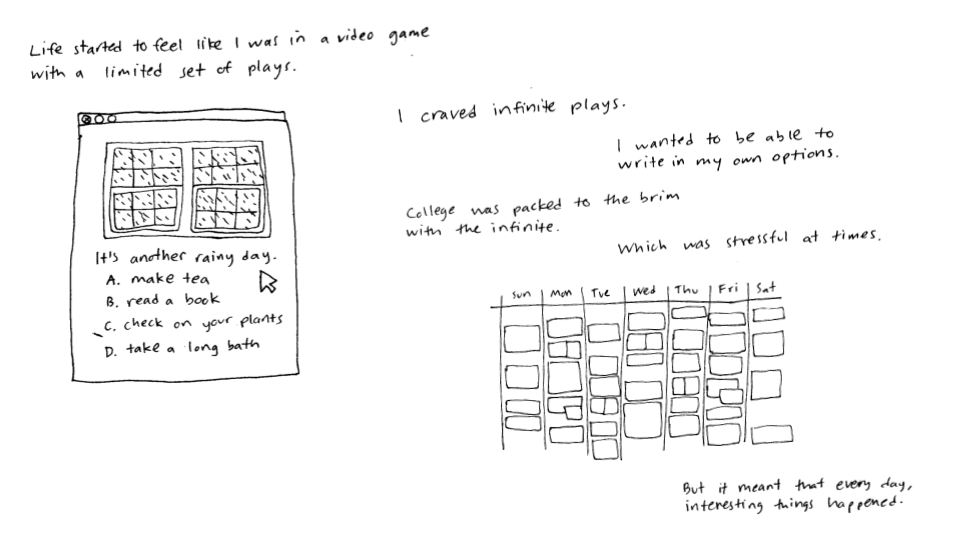 Life started to feel like I was in a video game
with a limited set of plays.
It's another rainy day.
A. make tea
B. read a book
C. check on your plants
D. take a long bath
I craved infinite plays.
I wanted to be able to
write in my own options.
College was packed to the brim
with the infinite.
Which was stressful at times.
Sun Mon Tue Wed Thu Fri Sat
But it meant that every day,
interesting things happened.